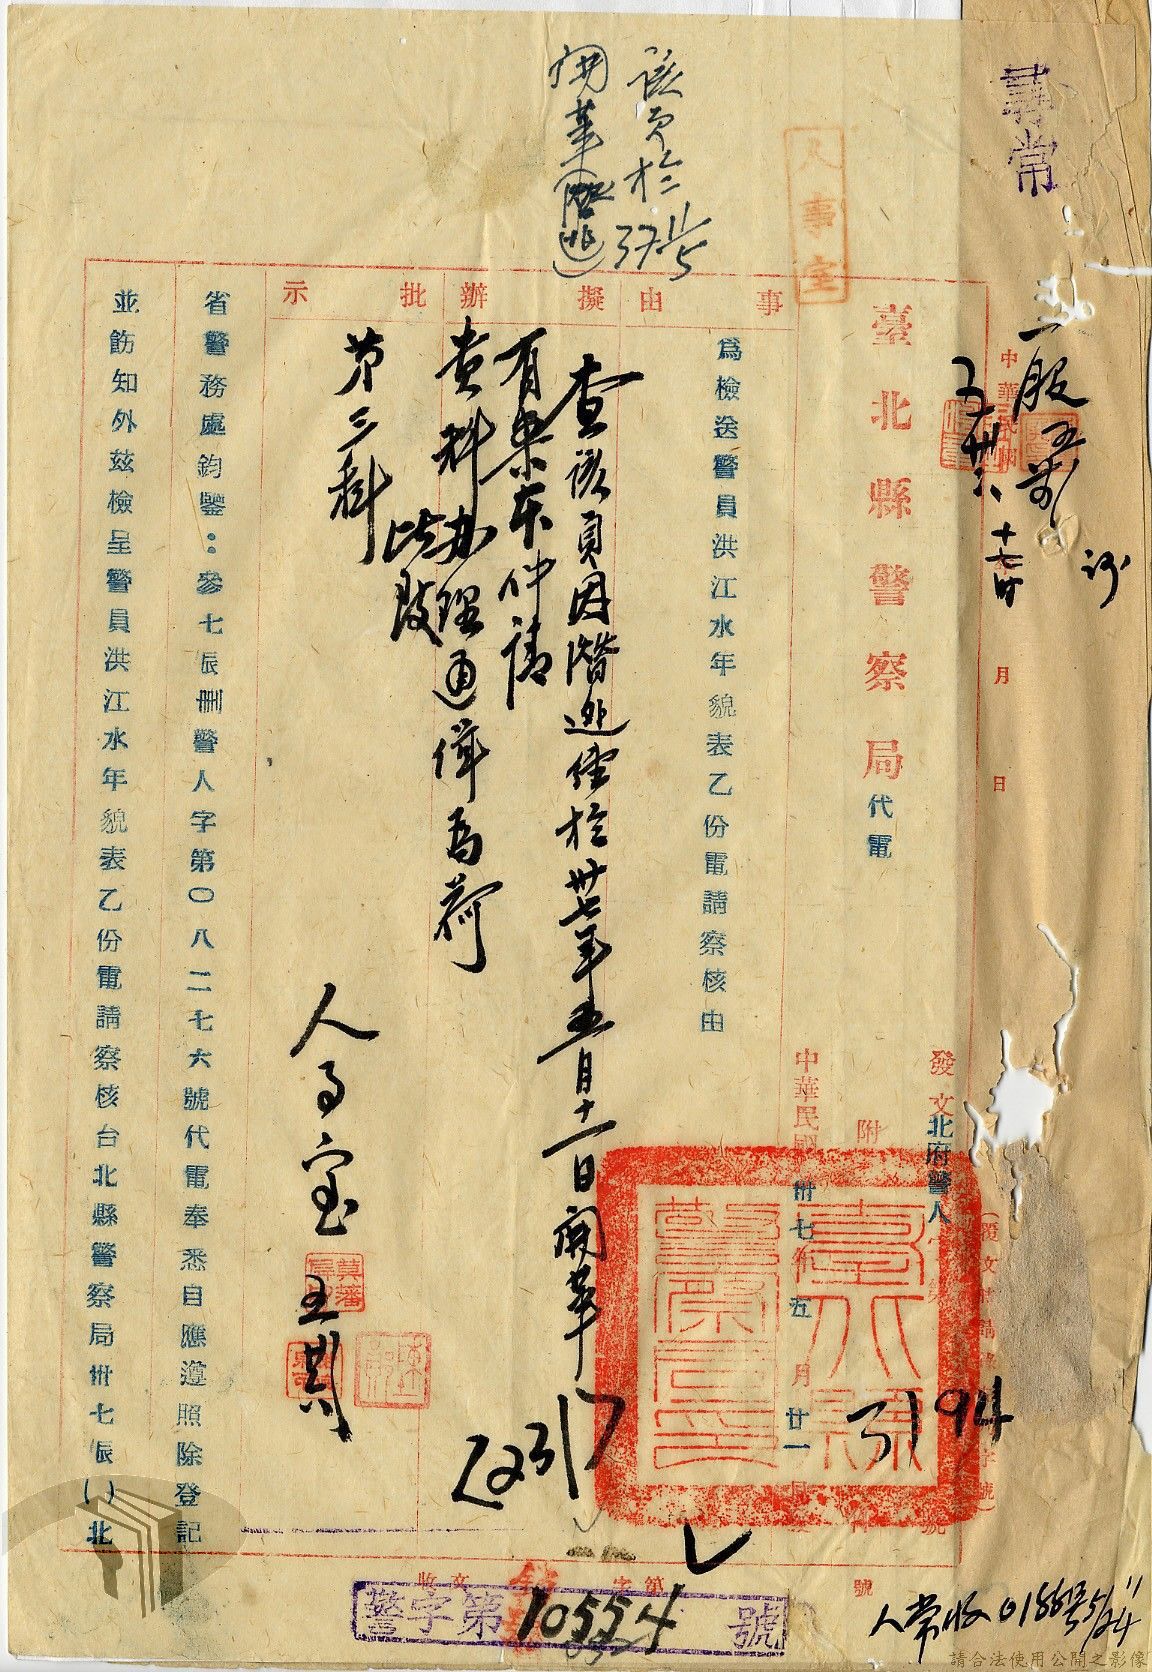 尋常
一股
人事室
該員於37 11/5
開革潛逃
臺北縣警察局代電
發文北府警人
3194
附
中華民國卅七年五月廿一日
事由
擬辦
批示
為檢送警員洪江水年貌表乙份電請察核由
查該員因潛逃經於卅七年五月十一日開革
有案本件請
貴科办理通缉為荷
此致
第三科
人事室
省警務處鈞鑒：參七辰警人字第〇八二七六號代電奉悉自應遵照除登記
並飭知外茲檢呈警員洪江水年貌表乙份電請察核台北縣警察局卅七辰( )北
收文 字第 號
警字第10554號
人常收01860號 5/24
請合法使用公開之影像